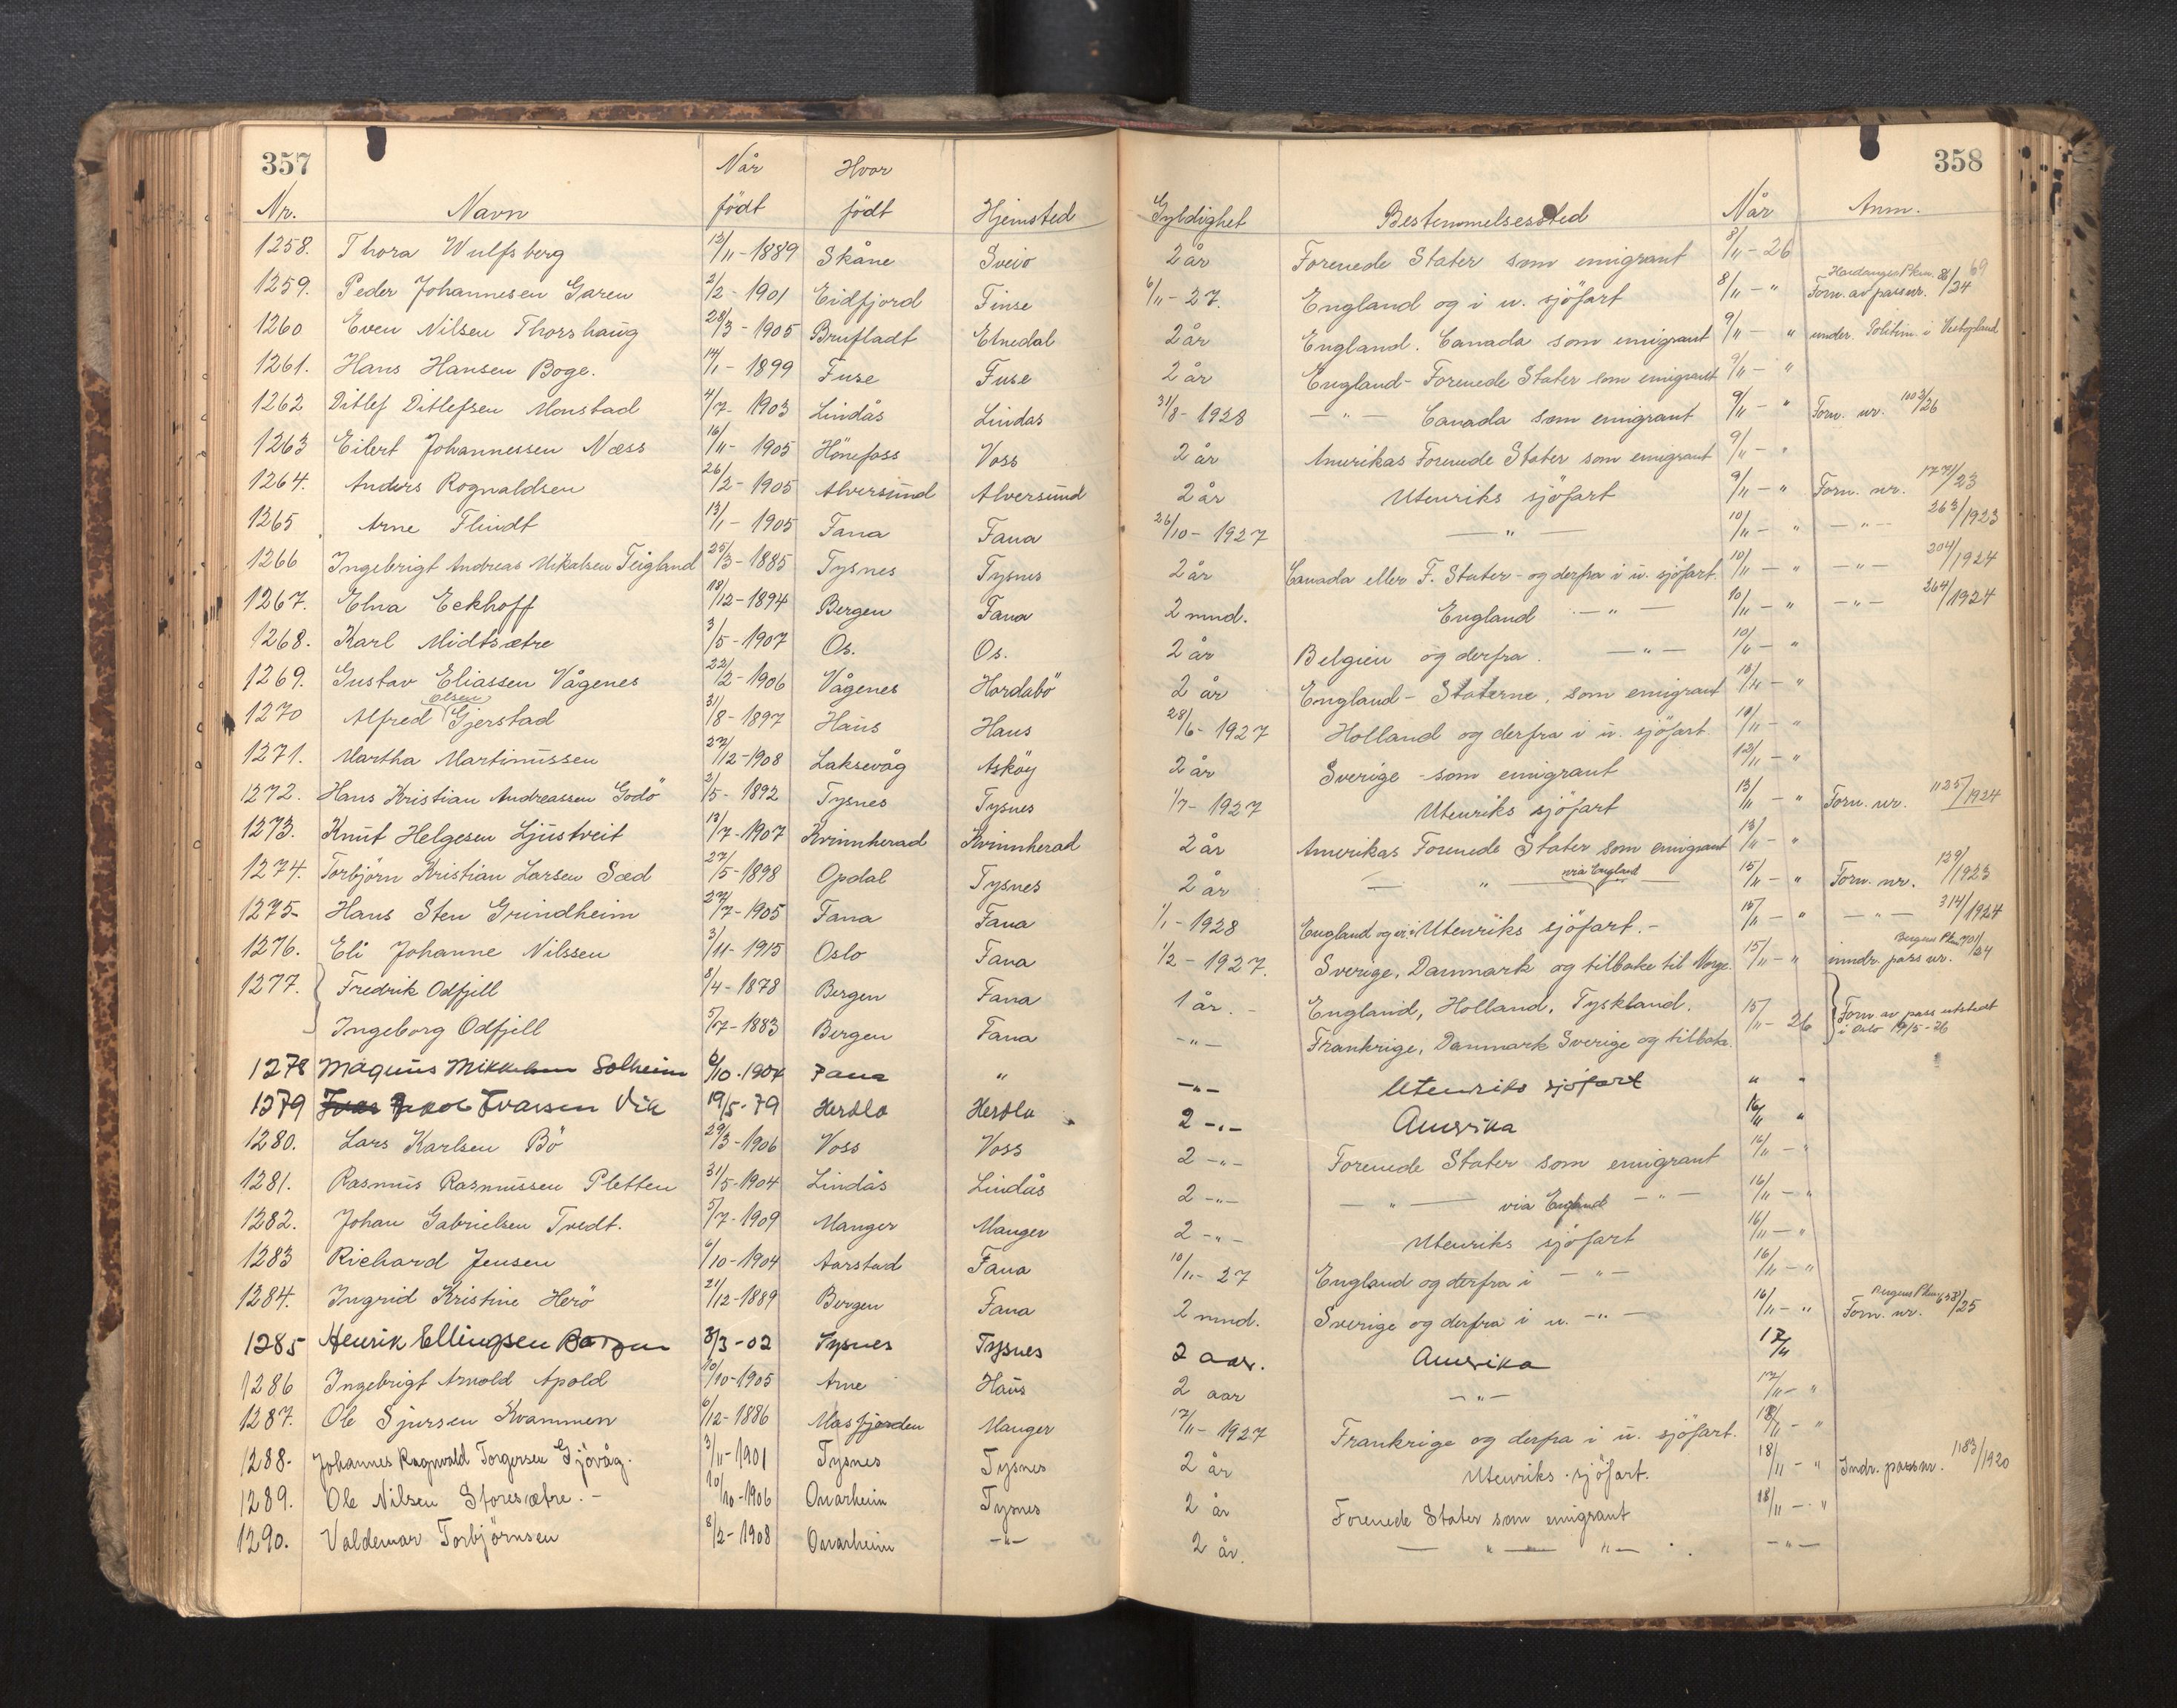 357
358
Nr. Navn Når födt Hvor födt Hjemsted Gyldighet Bestemmelsessted Når Anm.
1258. Thora Wulfsberg 13/11-1889 Skåne Sveio 2 år Forenede Stater som emigrant 8/11-26
1259. Peder Johannesen Garen 2/2-1901 Eidfjord Finse 6/11-27. England og i u. sjöfart 8/11-" Hardanger Pkm. Forn. av passnr. 86/24 69
1260 Even Nilsen Thorshaug 28/3-1905 Brufladt Etnedal 2 år England. Canada som emigrant 9/11-" under. Politim. i Vestopland
1261. Hans Hansen Boge. 14/1-1899 Fuse Fuse 2 år England- Forenede Stater som emigrant 9/11-"
1262 Ditlef Ditlefsen Monstad 4/7-1903 Lindås Lindas 31/8-1928 -"- Canada som emigrant 9/11-" Forn. nr. 1103/26
1263 Eilert Johannessen Næss 16/11-1905 Hönefoss Voss 2 år Amerikas Forenede Stater som emigrant 9/11-"
1264. Anders Rognaldsen 26/2-1905 Alversund Alversund 2 år Utenriks sjöfart 9/11-" Forn. nr. 1771/23
1265 Arne Flindt 13/1-1905 Fana Fana 26/10-1927 -"- 10/11-" -"- 263/1923
1266 Ingebrigt Andreas Mikalsen Teigland 25/3-1885 Tysnes Tysnes 2 år Canada eller F. Stater- og derfra i u. sjöfart. 10/11-" -"- 204/1924
1267. Elna Eckhoff 18/12-1894 Bergen Fana 2 mnd. England -"- 10/11-" -"- 264/1924
1268. Karl Midtsætre 3/5-1907 Os. Os. 2 år Belgien og derfra. -"- 10/11-"
1269. Gustav Eliassen Vågenes 22/2-1906 Vågenes Hordabö 2 år England- Staterne, som emigrant 10/11-"
1270 Alfred Olsen Gjerstad 31/8-1897 Haus Haus 28/6-1927 Holland og derfra i u. sjöfart. 10/11-"
1271. Martha Martinussen 27/12-1908 Laksevåg Asköy 2 år Sverige -som emigrant 12/11-"
1272. Hans Kristian Andreassen Godö 2/5-1892 Tysnes Tysnes 1/7-1927 Utenriks sjöfart 13/11-" Forn. nr. 1125/1924
1273. Knut Helgesen Ljustveit 13/7-1907 Kvinnherad Kvinnherad 2 år Amerikas Forenede Stater som emigrant 13/11-"
1274. Torbjörn Kristian Larsen Sæd 27/5-1898 Opdal Tysnes 2 år -"- via England 15/11-" Forn. nr. 129/1923
1275- Hans Sten Grindheim 27/7-1905 Fana Fana 1/1-1928 England og i Utenriks sjöfart.- 15/11-" -"- 314/1924
1276. Eli Johanne Nilssen 3/11-1915 Oslo Fana 1/2-1927. Sverige, Danmark og tilbake til Norge. 15/11-" Bergens Pkm. inndr. pass nr. 701/24
1277. Fredrik Odfjell 8/4-1878 Bergen Fana 1 år.- England, Holland, Tyskland.
Ingeborg Odfjell 5/7-1883 Bergen Fana -"- Frankrige, Danmark Sverige og tilbake. 15/11-26 Forn. av pass utstedt i Oslo 19/5-26
1278 Magnus Mikkelsen Solheim 6/10-1904 Fana " -"- Utenriks sjöfart " "
1279 Jakob Ivarsen Vik 19/5-79 Herdla Herdla 2 -"- Amerika 16/11 "
1280. Lars Karlsen Bö 29/3-1906 Voss Voss 2 -"- Forenede Stater som emigrant 16/11-"
1281. Rasmus Rasmussen Pletten 31/5-1904 Lindås Lindås 2 -"- -"- via England -"- 16/11-"
1282. Johan Gabrielsen Tvedt. 5/7-1909 Manger Manger 2 -"- Utenriks sjöfart 16/11-"
1283 Richard Jensen 6/10-1904 Aarstad Fana 10/11-27 England og derfra i -"- 16/11-"
1284. Ingrid Kristine Herö 21/12-1889 Bergen Fana 2 mnd. Sverige og derfra i u. -"- 16/11-" Bergens Pkm. Forn. nr. 638/25
1285 Henrik Ellingsen 3/3-02 Tysnes Tysnes 2 aar. Amerika 17/11
1286 Ingebrigt Arnold Apold 10/10-1905 Arne Haus 2 aar -"- 17/11-"
1287. Ole Sjursen Kvammen 6/12-1886 Masfjorden Manger 17/11-1927 Frankrige og derfra i u. sjöfart. 18/11-"
1288- Johannes Ragnvald Torgersen Gjövåg. 3/11-1901 Tysnes Tysnes 2 år Utenriks sjöfart. 18/11-" Indr. passnr. 1183/1920
1289. Ole Nilsen Storesætre.- 10/10-1906 Onarheim Tysnes 2 år Forenede Stater som emigrant 18/11-"
1290. Valdemar Torbjörnsen 8/2-1908 Onarheim -"- 2 år. -"- "- -"-